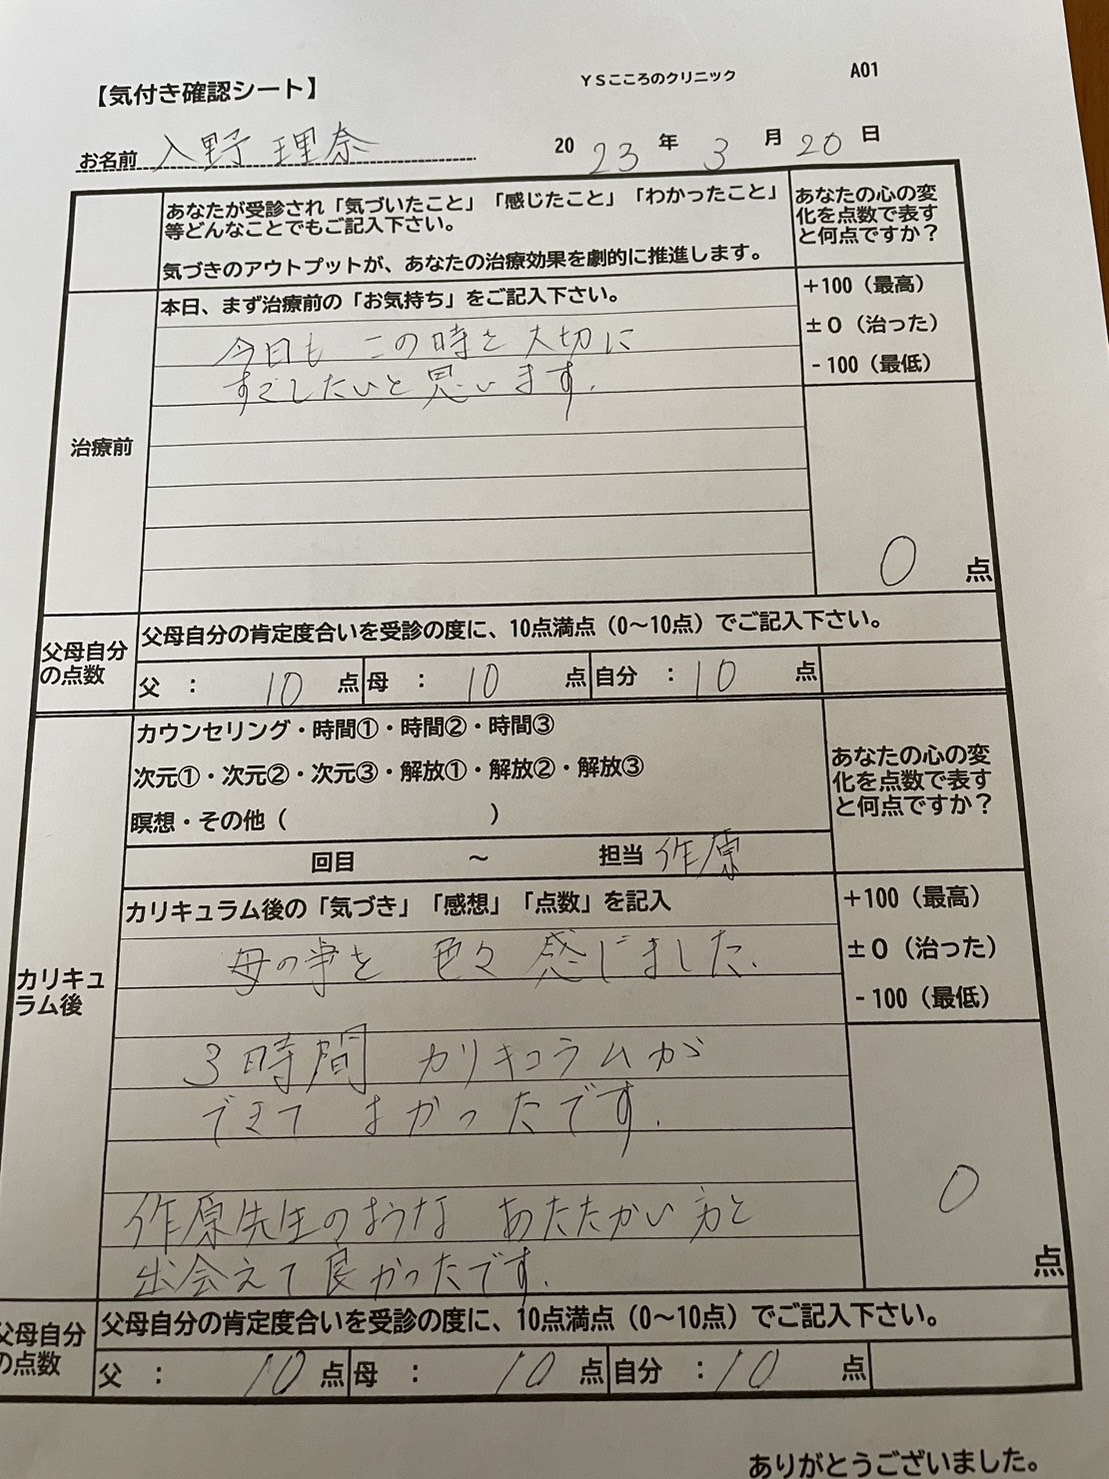 【気付き確認シート】
ＹＳこころのクリニック
A01
お名前 入野 理奈
20 23 年 3 月 20 日
あなたが受診され「気づいたこと」「感じたこと」「わかったこと」
等どんなことでもご記入下さい。
気づきのアウトプットが、あなたの治療効果を劇的に推進します。
あなたの心の変
化を点数で表す
と何点ですか？
治療前
本日、まず治療前の「お気持ち」をご記入下さい。
今日も この時を 大切に
すごしたいと思います.
＋100（最高）
±０（治った）
‐100（最低）
0 点
父母自分
の点数
父母自分の肯定度合いを受診の度に、10点満点（0〜10点）でご記入下さい。
父 ： 10 点 母 ： 10 点 自分 ： 10 点
カウンセリング・時間①・時間②・時間③
次元①・次元②・次元③・解放①・解放②・解放③
瞑想・その他（ ）
回目 〜 担当 作原
あなたの心の変
化を点数で表す
と何点ですか？
カリキュ
ラム後
カリキュラム後の「気づき」「感想」「点数」を記入
母の事を 色々 感じました.
3時間 カリキュラムが
できて よかったです.
作原先生のような あたたかい方と
出会えて良かったです.
＋100（最高）
±０（治った）
‐100（最低）
0 点
父母自分
の点数
父母自分の肯定度合いを受診の度に、10点満点（0〜10点）でご記入下さい。
父 ： 10 点 母 ： 10 点 自分 ： 10 点
ありがとうございました。